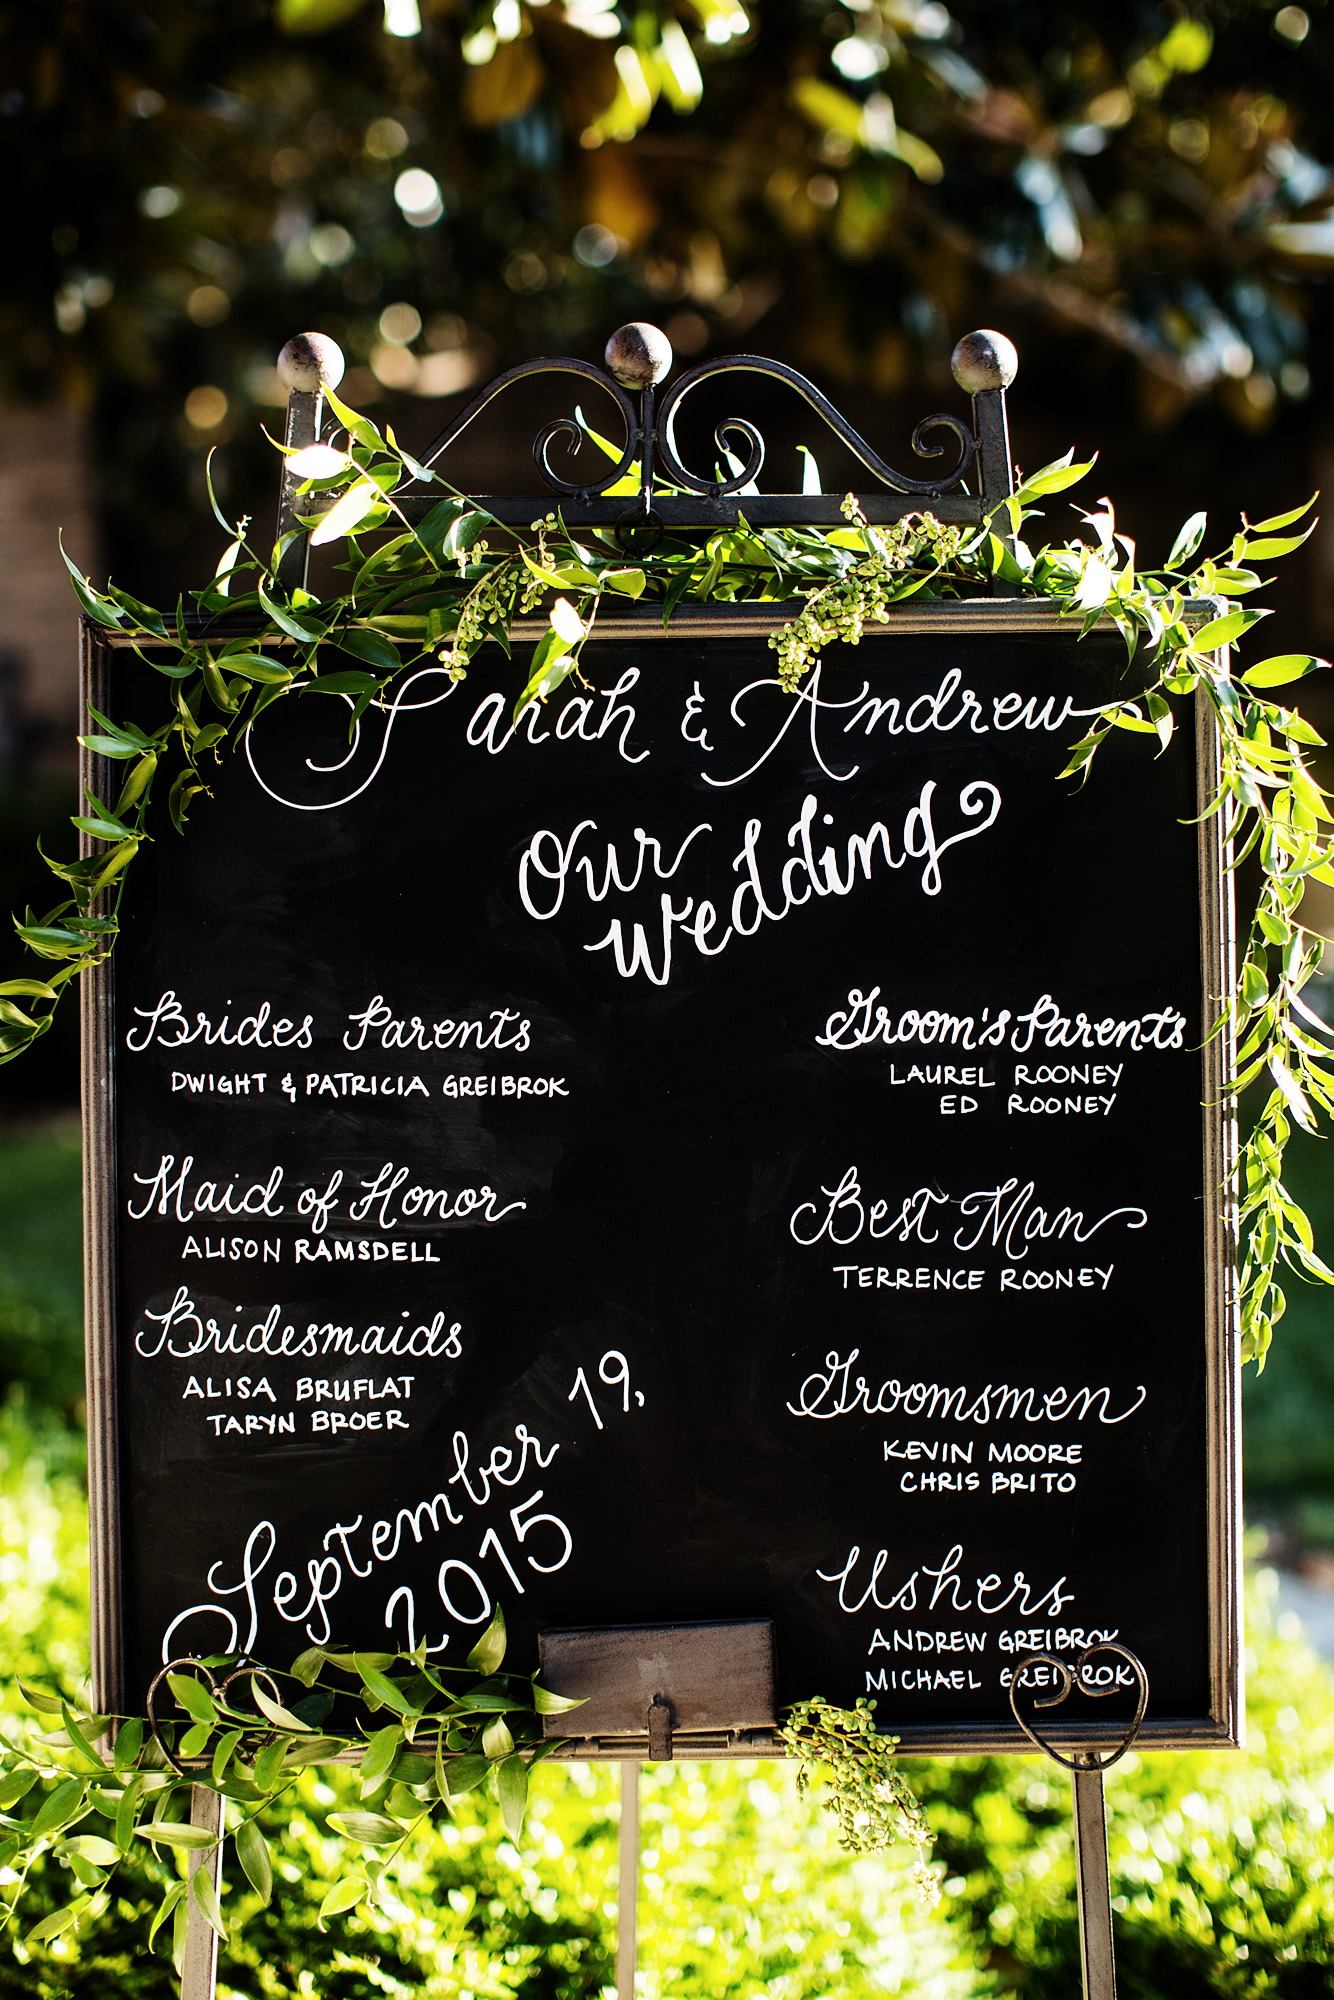 Sarah & Andrew
Our
Wedding
Brides Parents
DWIGHT & PATRICIA GREIBROK
Maid of Honor
ALISON RAMSDELL
Bridesmaids
ALISA BRUFLAT
TARYN BROER
September 19,
2015
Groom's Parents
LAUREL ROONEY
ED ROONEY
Best Man
TERRENCE ROONEY
Groomsmen
KEVIN MOORE
CHRIS BRITO
Ushers
ANDREW GREIBROK
MICHAEL GREIBROK